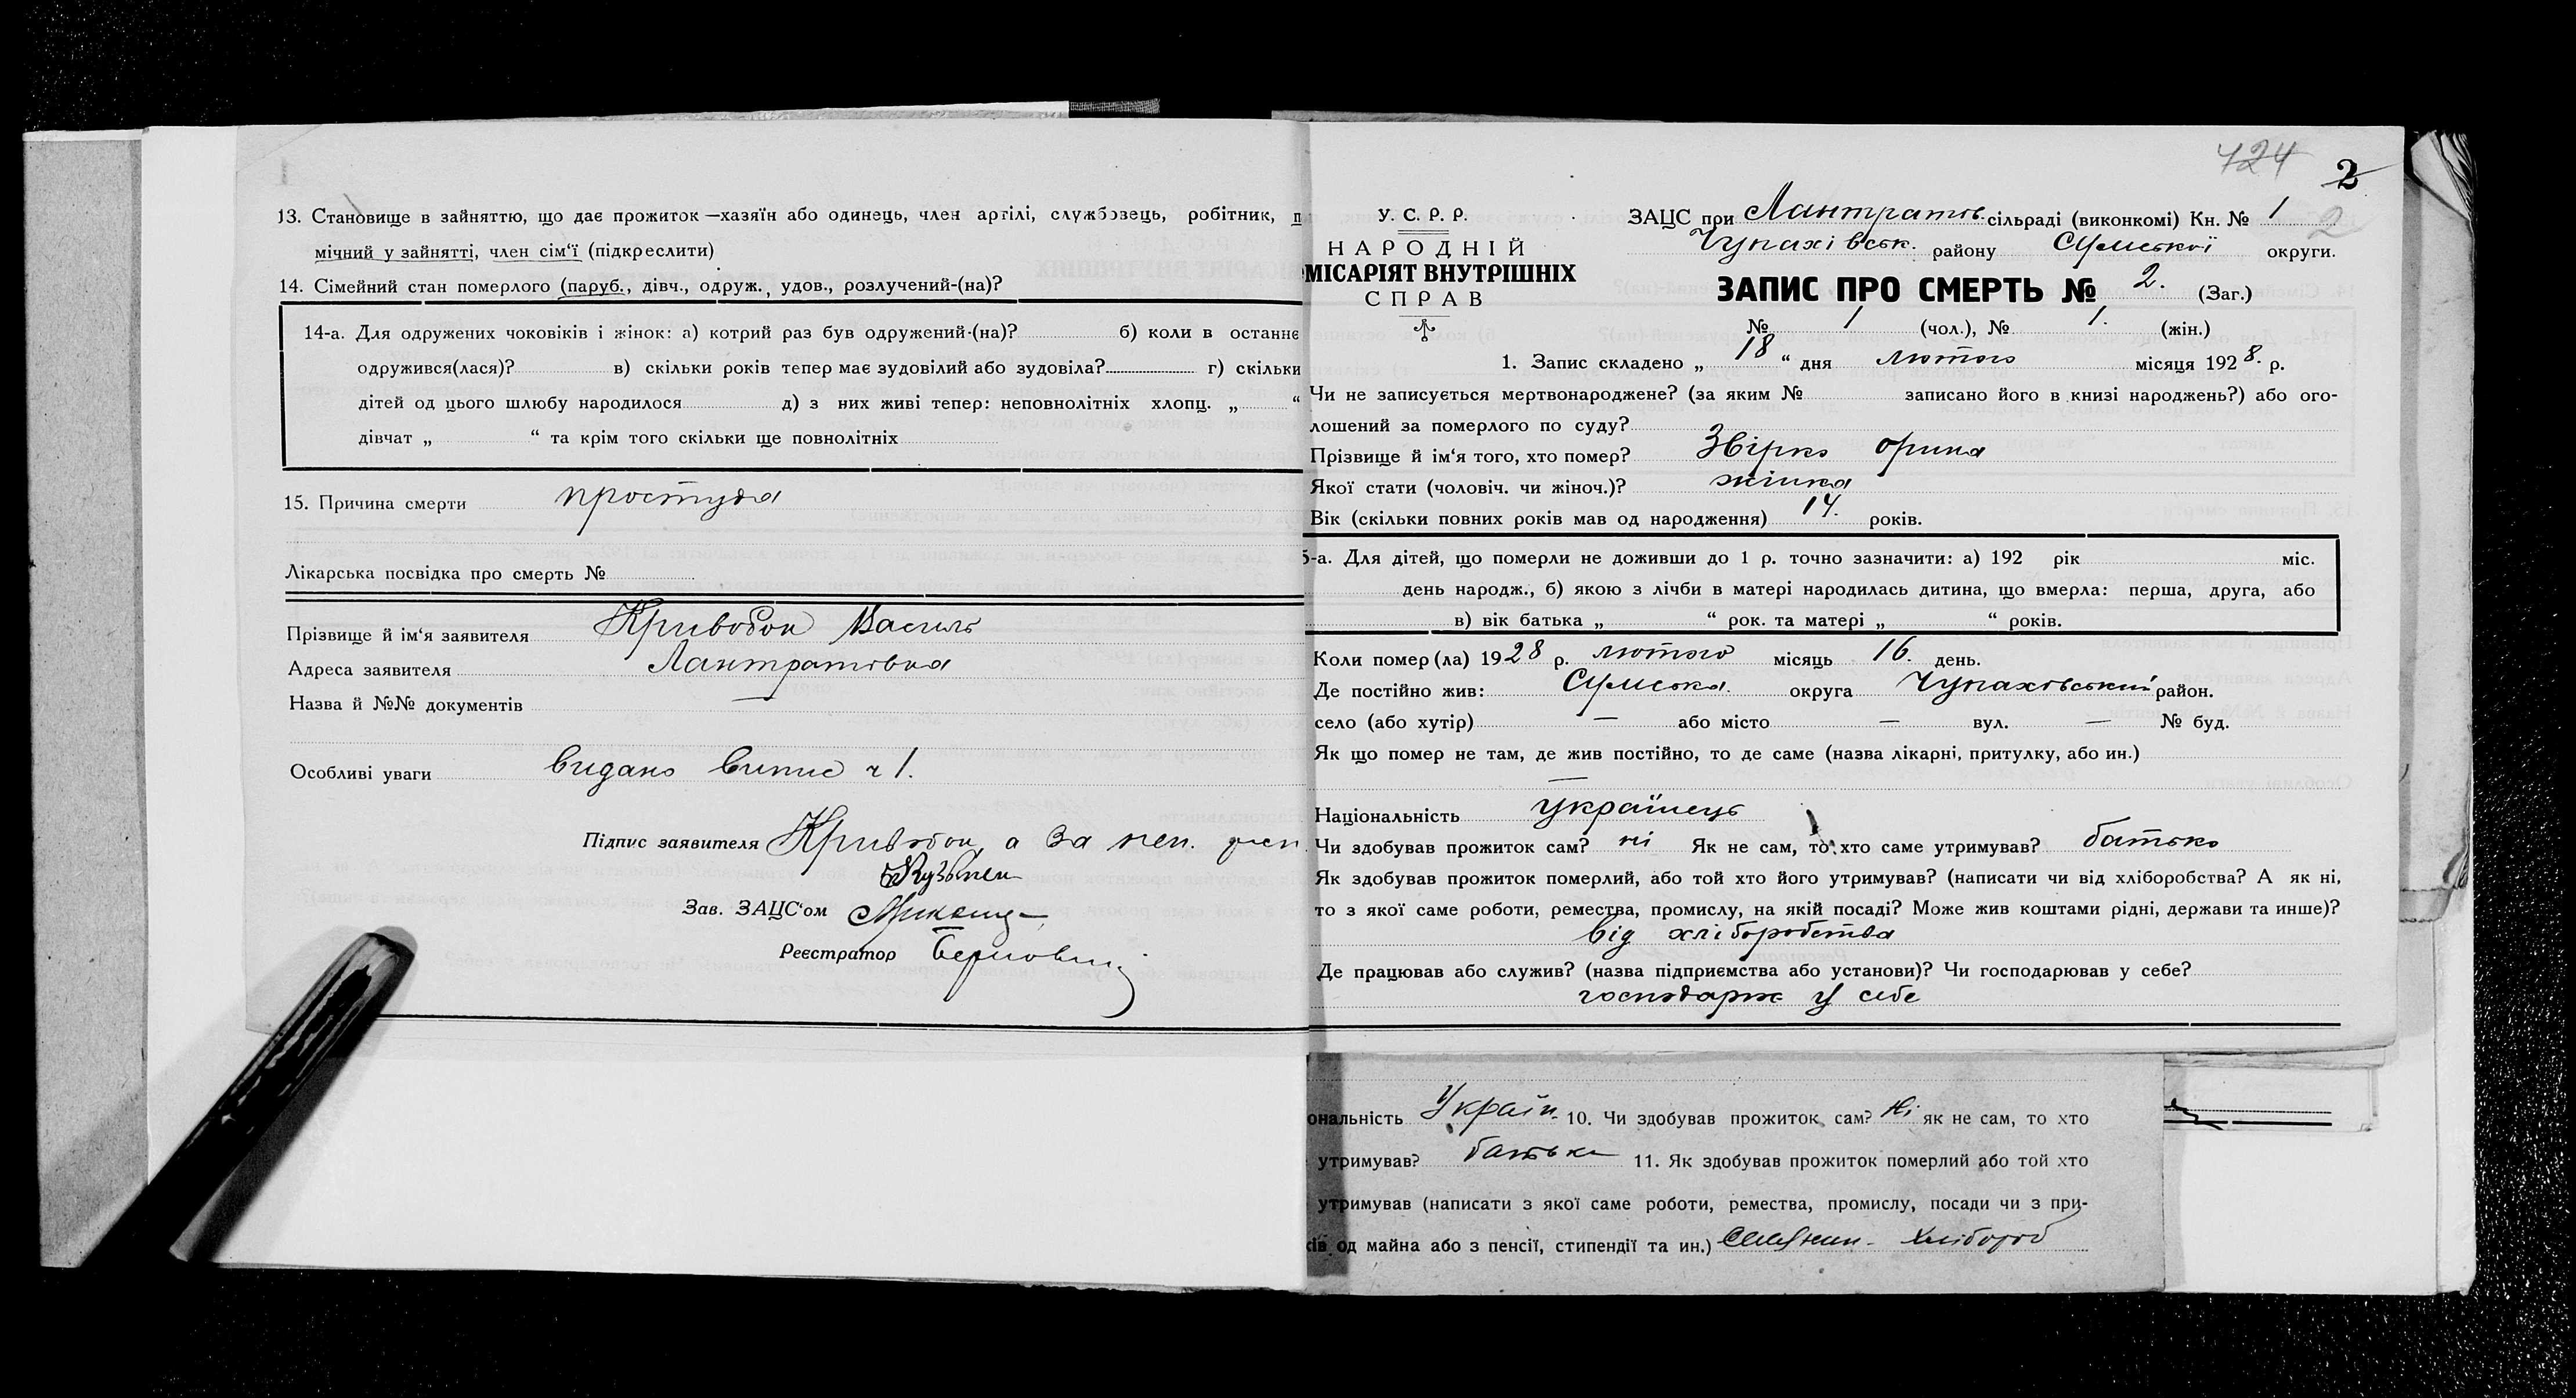 13. Становище в зайняттю, що дає прожиток—хазяїн або одинець, член артілі, службовець, робітник, п
мічний у зайнятті, член сім‘ї (підкреслити)
14. Сімейний стан померлого (паруб., дівч., одруж., удов., розлучений-(на)?
14-а. Для одружених чоковіків і жінок: а) котрий раз був одружений-(на)? б) коли в останнє
одружився(лася)? в) скільки років тепер має зудовілий або зудовіла? г) скільки
дітей од цього шлюбу народилося д) з них живі тепер: неповнолітніх хлопц. „ “
дівчат „ “ та крім того скільки ще повнолітніх
15. Причина смерти простуда
Лікарська посвідка про смерть №
Прізвище й ім‘я заявителя Кривобок Василь
Адреса заявителя Лантратовка
Назва й №№ документів —
Особливі уваги видано випис ч 1.
Підпис заявителя Кривобок, а за неп.
Зав. ЗАЦС‘ом
Реєстратор
724 2
У. С. Р. Р.
НАРОДНІЙ
МІСАРІЯТ ВНУТРІШНІХ
СПРАВ
ЗАЦС при Лантратов. сільраді (виконкомі) Кн. № 1
2
Чупахівськ. району Сумської округи.
ЗАПИС ПРО СМЕРТЬ № 2. (Заг.)
№ 1 (чол.), № 1. (жін.)
1. Запис складено „ 18 “ дня лютого місяця 1928. р.
Чи не записується мертвонароджене? (за яким № записано його в книзі народжень?) або ого-
лошений за померлого по суду?
Прізвище й ім‘я того, хто помер? Звірко Орина
Якої стати (чоловіч. чи жіноч.)? жінка
Вік (скільки повних років мав од народження) 14. років.
5-а. Для дітей, що померли не доживши до 1 р. точно зазначити: а) 192 рік міс.
день народж., б) якою з лічби в матері народилась дитина, що вмерла: перша, друга, або
в) вік батька „ “ рок. та матері „ “ років.
Коли помер(ла) 1928 р. лютого місяць 16. день.
Де постійно жив: Сумська. округа Чупаховський район.
село (або хутір) — або місто — вул. — № буд.
Як що помер не там, де жив постійно, то де саме (назва лікарні, притулку, або ин.)
—
Національність українець
Чи здобував прожиток сам? ні Як не сам, то хто саме утримував? батько
Як здобував прожиток померлий, або той хто його утримував? (написати чи від хліборобства? А як ні,
то з якої саме роботи, ремества, промислу, на якій посаді? Може жив коштами рідні, держави та инше)?
від хліборобства
Де працював або служив? (назва підприємства або установи)? Чи господарював у себе?
господарюе у себе
ональність Україн. 10. Чи здобував прожиток сам? Ні як не сам, то хто
утримував? батько 11. Як здобував прожиток померлий або той хто
утримував (написати з якої саме роботи, ремества, промислу, посади чи з при-
ків од майна або з пенсії, стипендії та ин.) Селянин- Хлібороб